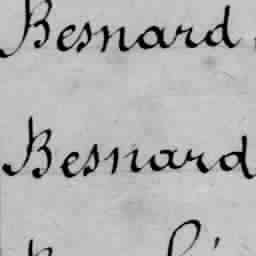 Besnard
Besnard